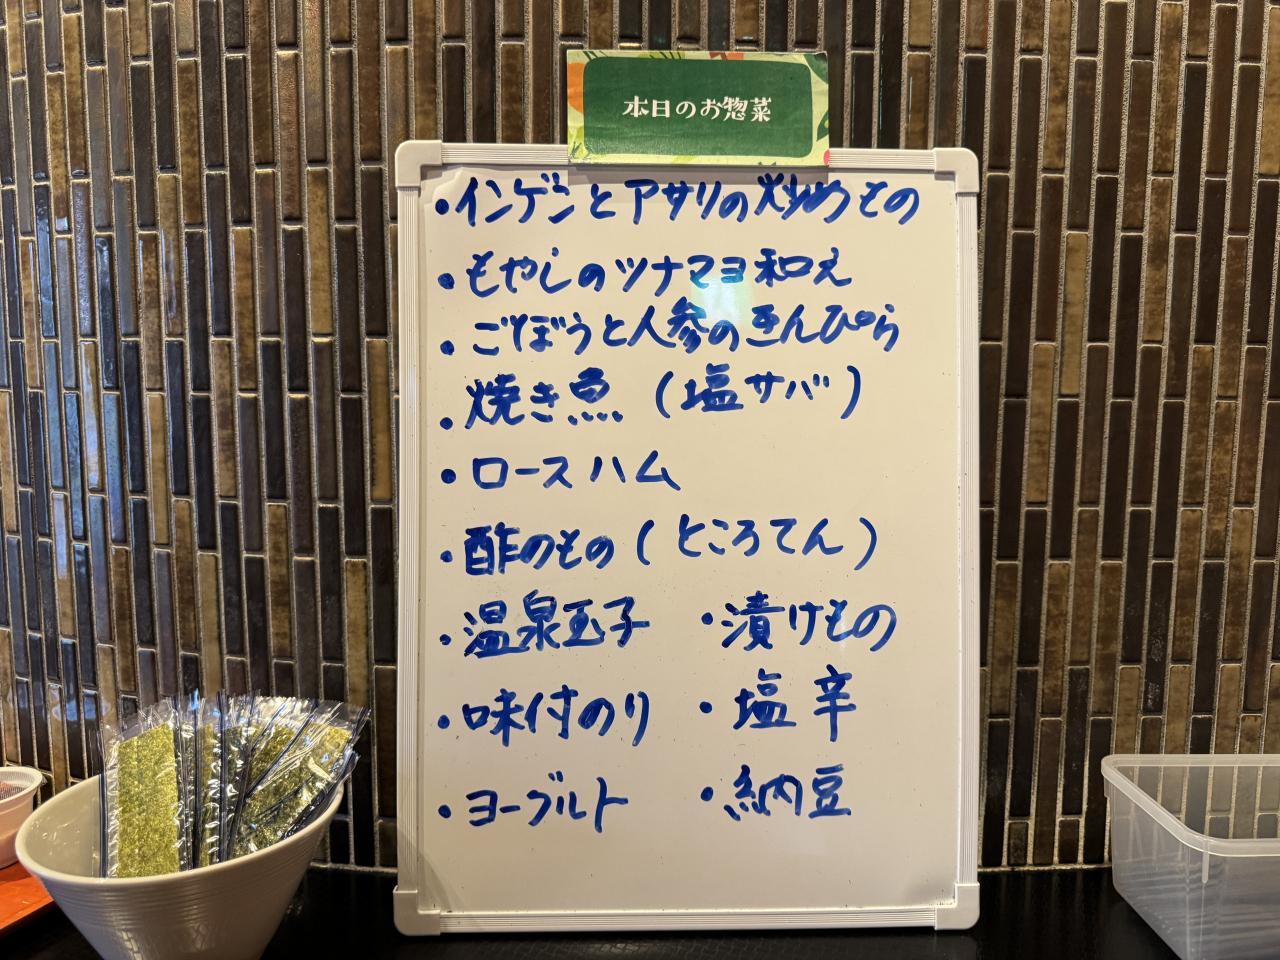 本日のお惣菜
・インゲンとアサリの炒めもの
・もやしのツナマヨ和え
・ごぼうと人参のきんぴら
・焼き魚（塩サバ）
・ロースハム
・酢のもの（ところてん）
・温泉玉子 ・漬けもの
・味付のり ・塩辛
・ヨーグルト ・納豆